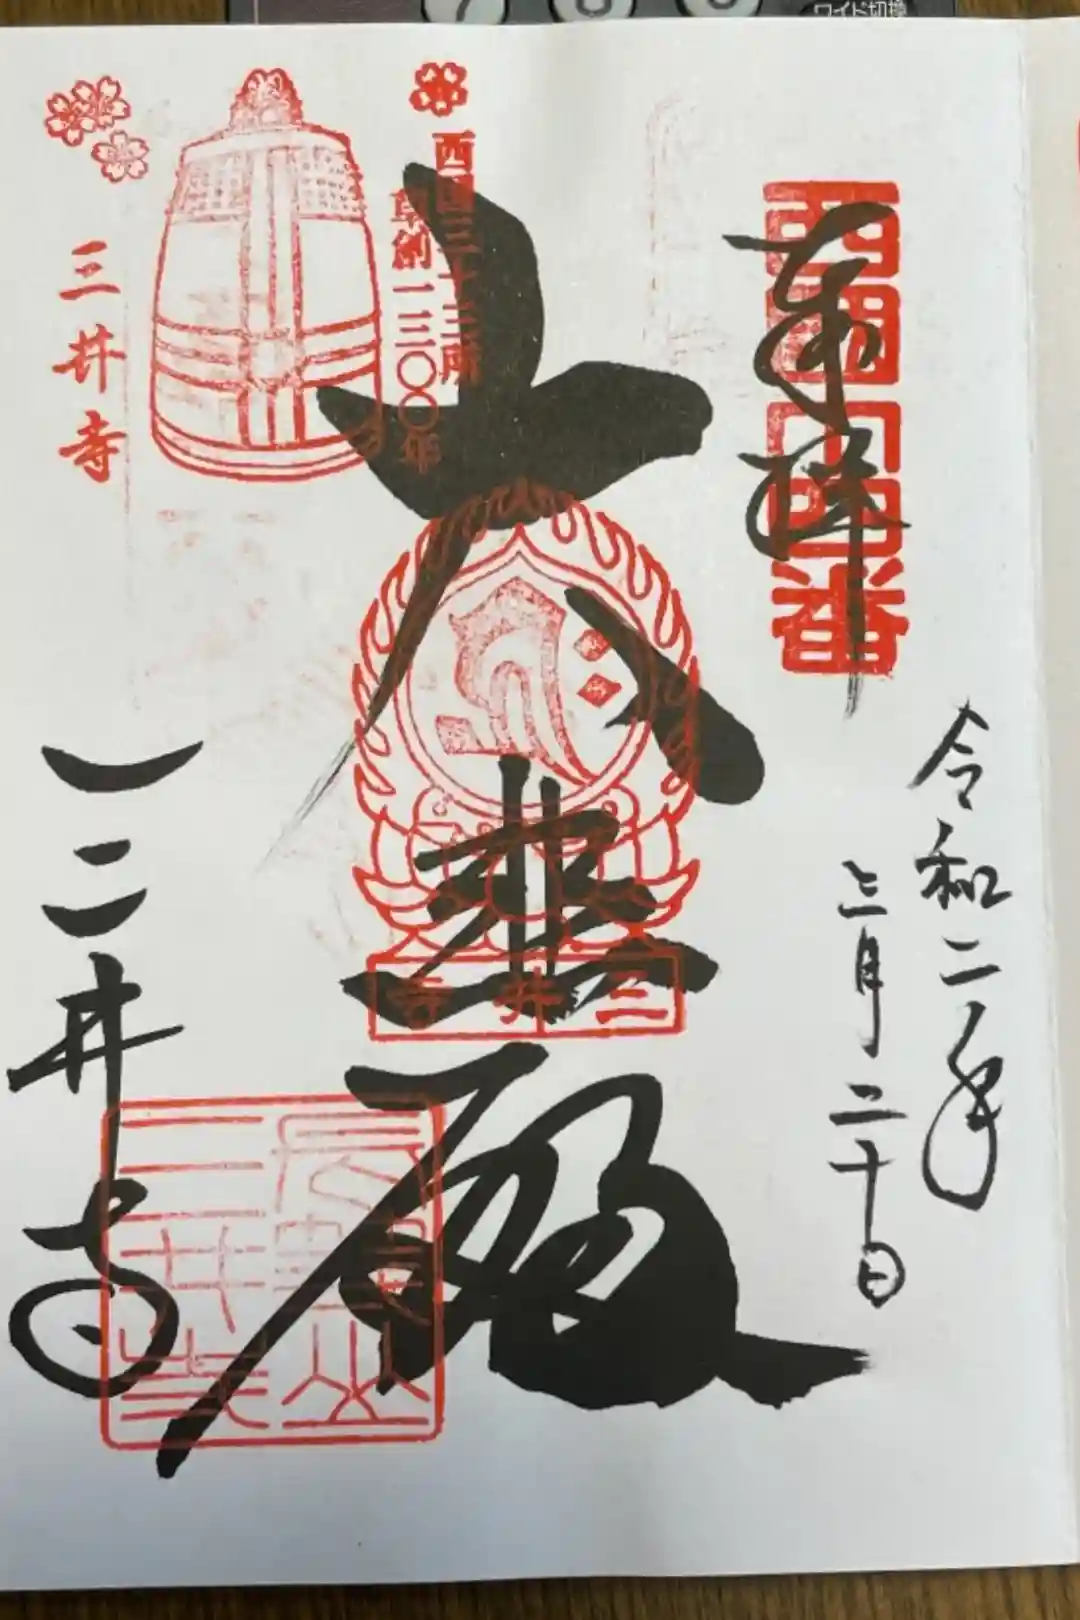 ワイド切換
西国十四番
奉拝
令和二年
三月二十日
西国三十三所
草創一三〇〇年
大悲殿
三井寺
三井寺
三井寺
長等山